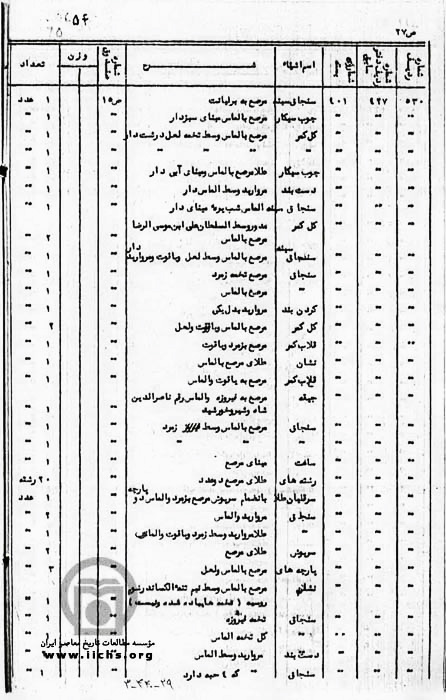 ۵۴
ص ۲۷
شماره ردیف شماره ردیف دفتر سابق شماره بسته اسم اشیاء شرح شماره صندوق وزن تعداد
۵۳۰ ۴۲۷ ۴۰۱ سنجاق سینه مرصع به برلیانت ص ۱۵ ۱ عدد
" " " چوب سیگار مرصع بالماس مینای سبزدار " ۱
" " " گل کمر مرصع بالماس وسط تخته لعل درشت دار " ۱
" " " " " " " " ۱
" " " چوب سیگار طلا مرصع بالماس ومینای آبی دار " ۱
" " " دست بند مروارید وسط الماس دار " ۱
" " " سنجاق سینه الماس شب پره مینای دار " ۱
" " " گل کمر مدور وسط السلطان علی ابن موسی الرضا
مرصع بالماس " ۲
" " " سنجاق سینه مرصع بالماس وسط لعل ویاقوت ومروارید دار " ۱
" " " سنجاق مرصع تخمه زمرد " ۱
" " " " مرصع بالماس " ۱
" " " گردن بند مروارید بدل یکی " ۱
" " " گل کمر مرصع بالماس ویاقوت ولعل " ۲
" " " قلاب کمر مرصع بزمرد ویاقوت " ۱
" " " نشان طلای مرصع بالماس " ۱
" " " قلاب کمر مرصع به یاقوت والماس " ۱
" " " جیقه مرصع به فیروزه والماس رقم ناصرالدین
شاه وشیروخورشید " ۱
" " " سنجاق مرصع بالماس وسط زمرد " ۱
" " " " " " " ۱
" " " ساعت مینای مرصع " ۱
" " " رشته های طلای مرصع " ۲۰ رشته
" " " سرقلیان طلا بانضمام سرپوش مرصع بزمرد والماس دو پارچه " ۱ عدد
" " " سنجاق مروارید والماس " ۲
" " " " طلا مروارید وسط زمرد ویاقوت والماس " ۱
" " " سرپوش طلای مرصع " ۲
" " " پارچه های مرصع بالماس ولعل " ۳
" " " نشان مرصع بالماس وسط نیم تنه الکساندر
روسیه ( تخمه هاپیاده شده ونیست )
" " " سنجاق تخمه فیروزه ۱
" گل تخمه الماس ۱
" " " دست بند مروارید وسط الماس
" " " سنجاق " که ٤ حبه دارد " ۱
مؤسسه مطالعات تاریخ معاصر ایران
www.iichs.org
۳-۳۴-۲۹